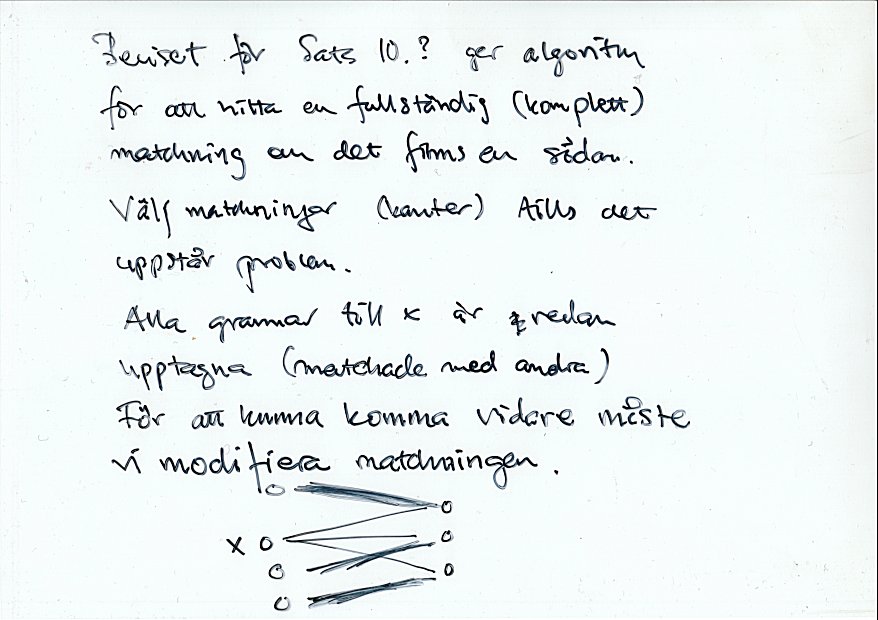 Beviset för Sats 10.? ger algoritm
för att hitta en fullständig (komplett)
matchning om det finns en sådan.
Välj matchningar (kanter) tills det
uppstår problem.
Alla grannar till x är redan
upptagna (matchade med andra)
För att kunna komma vidare måste
vi modifiera matchningen.
x